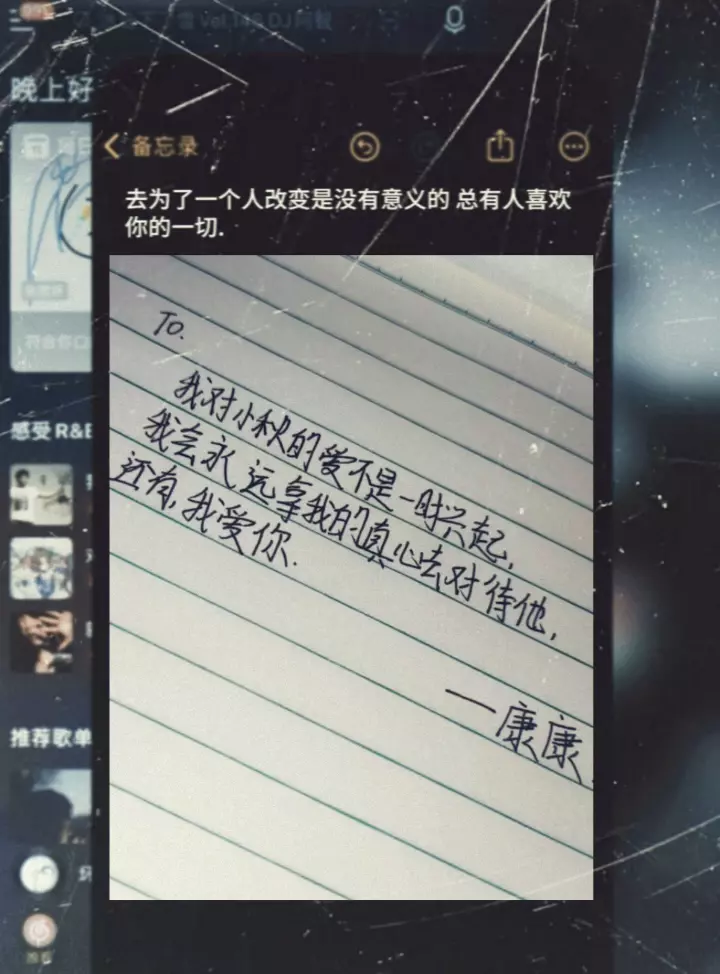 晚上好
备忘录
去为了一个人改变是没有意义的 总有人喜欢
你的一切.
To.
我对小秋的爱不是一时兴起,
我会永远拿我的真心去对待他,
还有,我爱你.
—康康.
感受R&B
推荐歌单